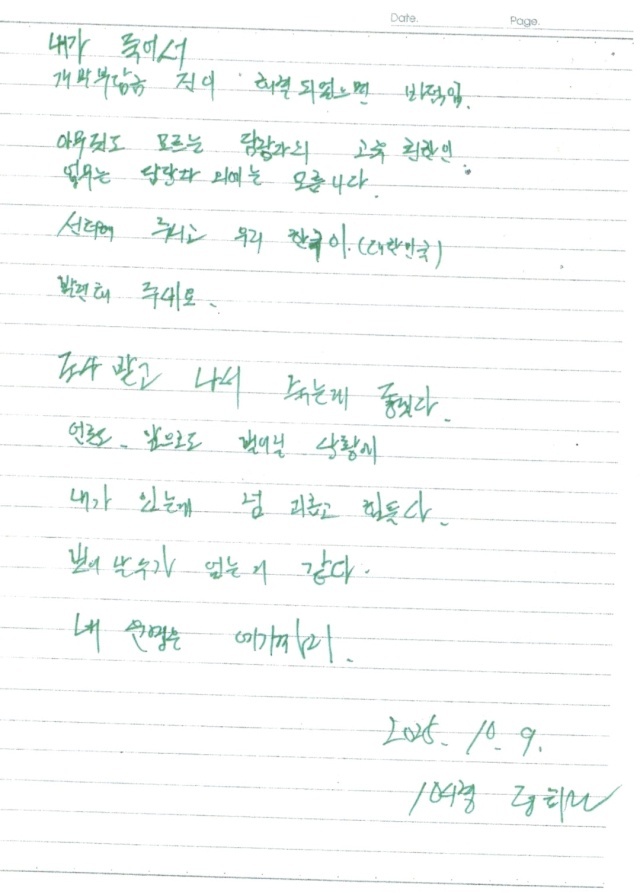 Date. Page.
내가 죽어서
개발부담금 건이 해결되었으면 바램임.
아무것도 모르는 담당자의 고유 권한인.
업무는 담당자 외에는 모릅니다.
선처해 주시고 우리 한국이.(대한민국)
발전해 주세요.
조사 받고 나서 죽는게 좋겠다.
언론도. 앞으로도 벌어질 상황에
내가 있는게 넘 괴롭고 힘들다.
벗어날수가 없는거 같다.
내 운명은 여기까지.
2025. 10. 9.
정희